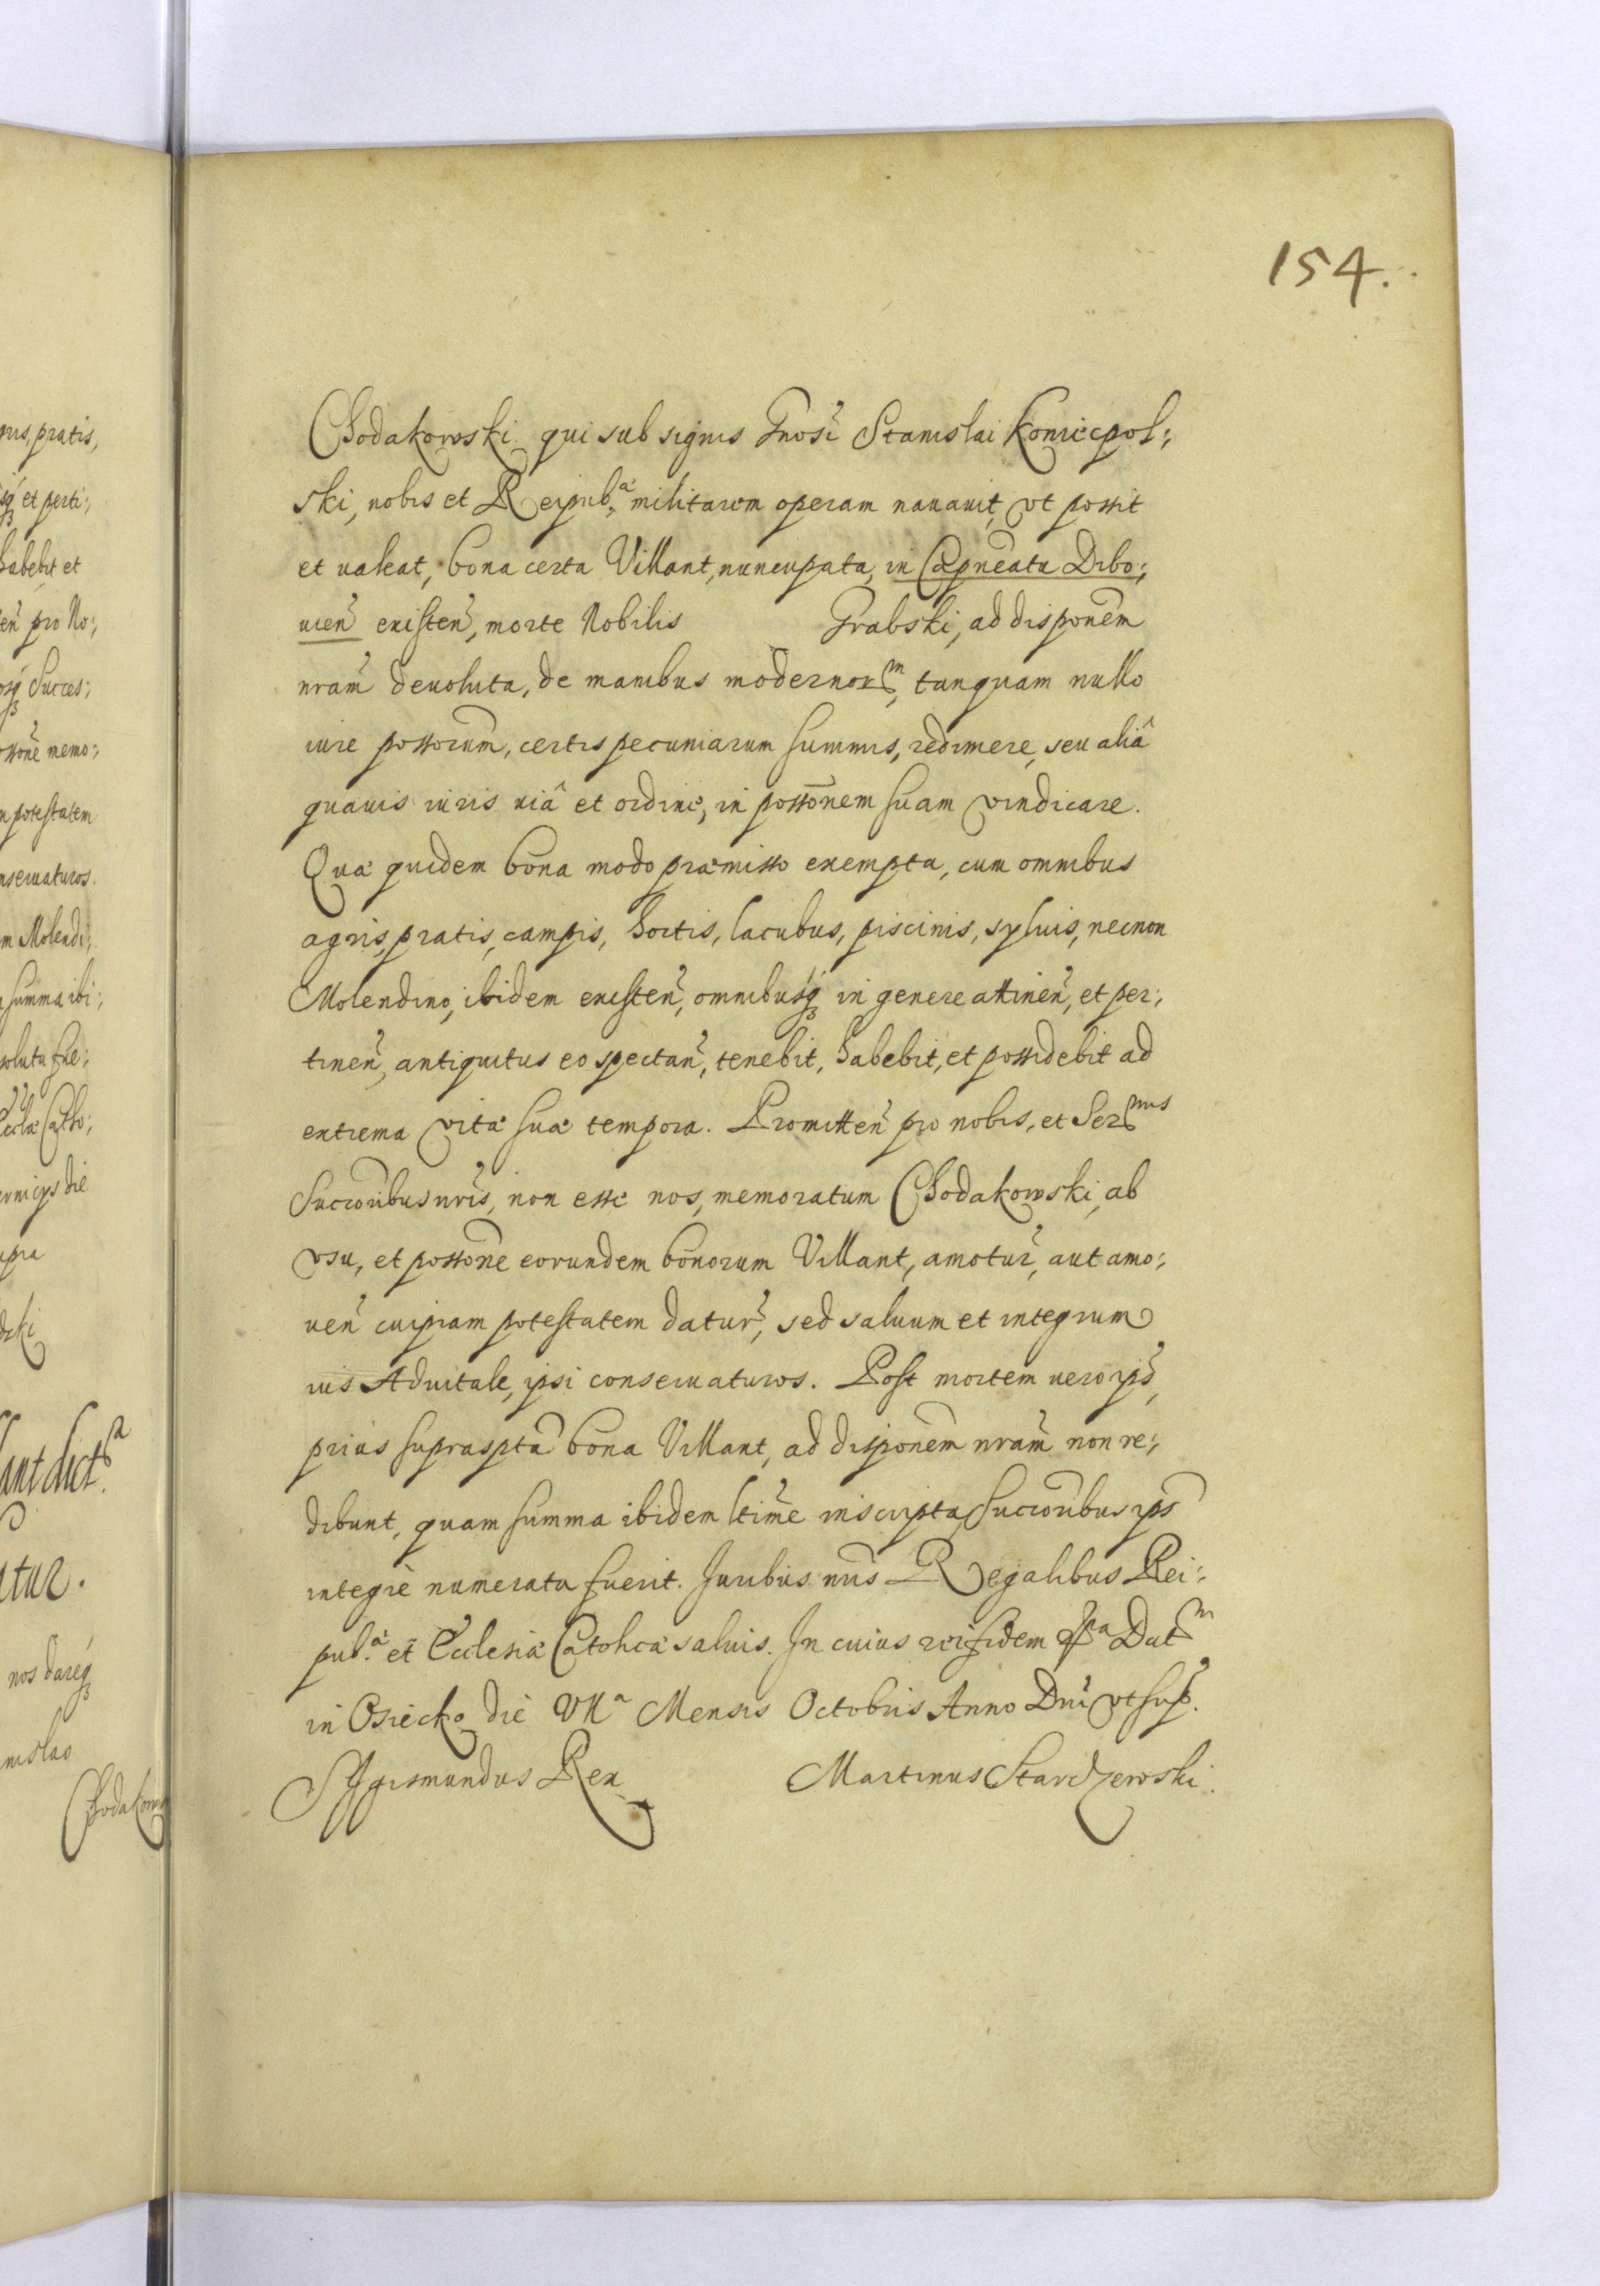 154.
Chodakowski qui sub signis Gnosi Stanislai Koniecpol:,
ski, nobis et Reipub.æ militarem operam nauauit, vt possit
et ualeat, bona certa Villant, nuncupata, in Capneatu Dibo:,
uien̄ existen̄, morte Nobilis Grabski, ad disponem̄
nram̄ deuoluta, de manibus modernor m, tanquam nullo
iure possorum̄, certis pecuniarum summis, redimere, seu aliâ
quauis iuris uiâ et ordine, in posso̅nem suam vindicare.
Quæ quidem bona modo præmisso exempta, cum omnibus
agris, pratis, campis, hortis, lacubus, piscinis, syluis, necnon
Molendino, ibidem existen̄, omnibusq́ꝫ in genere attinen̄, et per:,
tinen̄, antiquitus eo spectan̄, tenebit, habebit, et possidebit ad
extrema vitæ suæ tempora. Promitten̄ pro nobis, et Ser mis
Succoribus nris, non esse nos, memoratum Chodakowski, ab
vsu, et possone eorundem bonorum Villant, amotur̄, aut amo:,
uen̄ cuipiam potestatem datur̄, sed saluum et integrum
ius Aduitale, ipsi conseruaturos. Post mortem uero ips̄,
prius supraspta bona Villant, ad disponem̄ nram̄ non re:,
dibunt, quam summa ibidem ltime inscripta, succoribus ips̄
integrè numerata fuerit. Juribus nris Regalibus Rei:,
pub.æ et Ecclesiæ Catolicæ saluis. In cuius rei fidem Dat m
in Osiecko die VIIa Mensis Octobris Anno Dni vt sup.
Sigismundus Rex Martinus Stardzewski.
gris, pratis,
et perti:,
habebit et
en̄ pro No:,
osq́ꝫ Succes:,
ossone memo:,
m potestatem
nseruaturos.
m Molendi:,
summa ibi:,
soluta fue:,
Catho:,
die
upra
dski
lant dict a
atur.
nos dareq́ꝫ
nislao
Chodakows